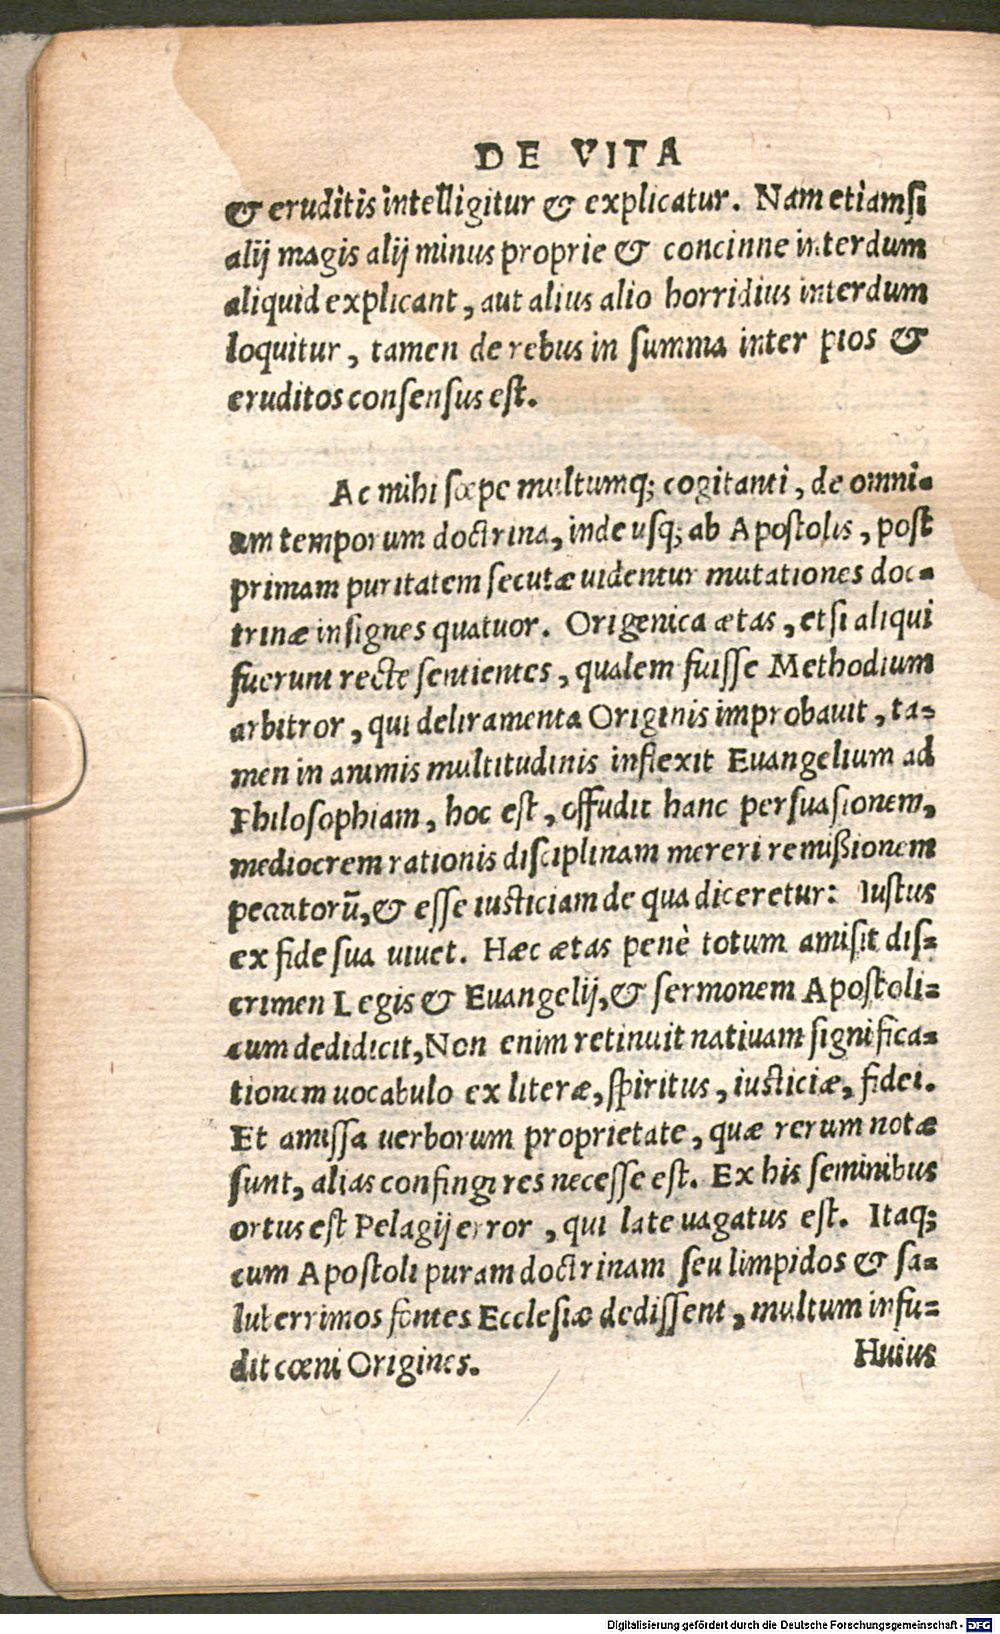 DE VITA
& eruditis intelligitur & explicatur. Nam etiamsi
alij magis alij minus proprie & concinne interdum
aliquid explicant, aut alius alio horridius interdum
loquitur, tamen de rebus in summa inter pios &
eruditos consensus est.
Ac mihi sæpe multumq; cogitanti, de omni=
um temporum doctrina, inde usq; ab Apostolis, post
primam puritatem secutæ uidentur mutationes doc=
trinæ insignes quatuor. Origenica ætas, etsi aliqui
fuerunt recte sentientes, qualem fuisse Methodium
arbitror, qui deliramenta Originis improbauit, ta=
men in animis multitudinis inflexit Euangelium ad
Philosophiam, hoc est, offudit hanc persuasionem,
mediocrem rationis disciplinam mereri remißionem
peccatorũ, & esse iusticiam de qua diceretur: Iustus
ex fide sua uiuet. Hæc ætas penè totum amisit dis=
crimen Legis & Euangelij, & sermonem Apostoli=
cum dedidicit, Non enim retinuit natiuam significa=
tionem uocabulo ex literæ, spiritus, iusticiæ, fidei.
Et amissa uerborum proprietate, quæ rerum notæ
sunt, alias confingi res necesse est. Ex his seminibus
ortus est Pelagij error, qui late uagatus est. Itaq;
cum Apostoli puram doctrinam seu limpidos & sa=
luberrimos fontes Ecclesiæ dedissent, multum infu=
dit cœni Origines.
Huius
Digitalisierung gefördert durch die Deutsche Forschungsgemeinschaft - DFG